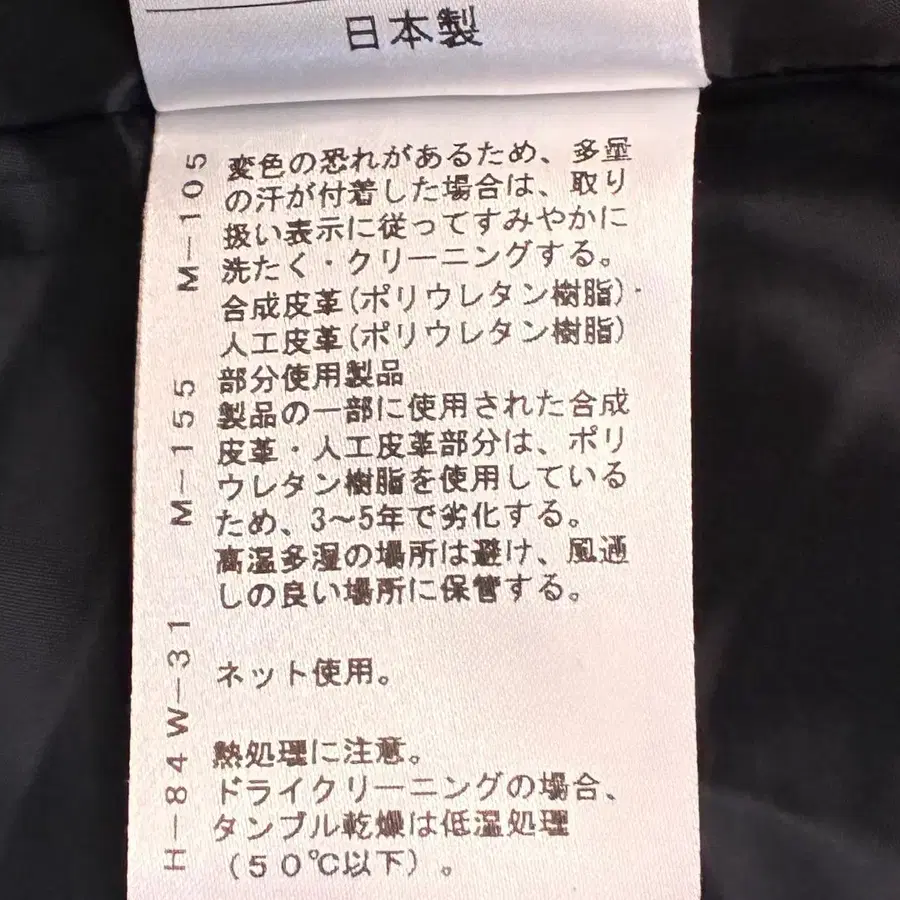 日本製
変色の恐れがあるため、多量
の汗が付着した場合は、取り
扱い表示に従ってすみやかに
洗たく・クリーニングする。
合成皮革(ポリウレタン樹脂)・
人工皮革(ポリウレタン樹脂)
部分使用製品
製品の一部に使用された合成
皮革・人工皮革部分は、ポリ
ウレタン樹脂を使用している
ため、3~5年で劣化する。
高温多湿の場所は避け、風通
しの良い場所に保管する。
ネット使用。
熱処理に注意。
ドライクリーニングの場合、
タンブル乾燥は低温処理
(50℃以下)。
M-105
M-155
H-84W-31